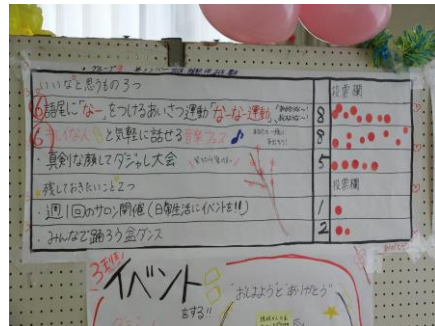 いいなと思うもの3つ
投票欄
語尾に「なー」をつけるあいさつ運動「なーなー運動」
8
と気軽に話せる音楽フェス
8
・真剣な顔してダジャレ大会
5
残しておきたいこと2つ
投票欄
・週1回のサロン開催(日常生活にイベントを!!)
1
・みんなで踊ろう盆ダンス
2
イベント
をする!!
"おはようとありがとう"